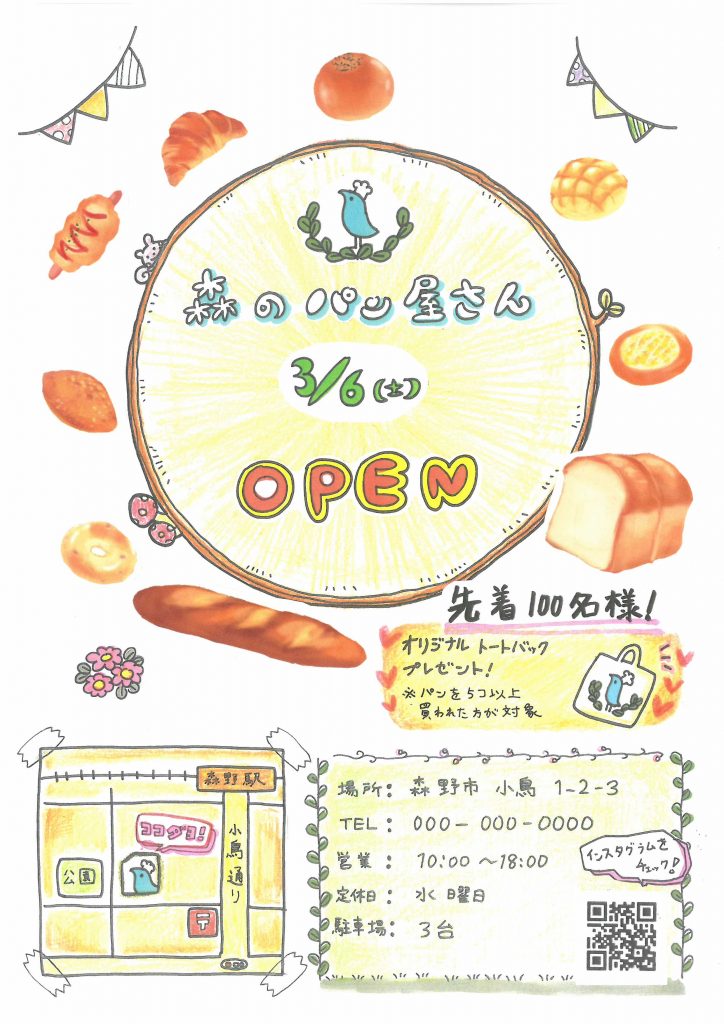 森のパン屋さん
3/6(土)
OPEN
先着100名様!
オリジナル トートバック
プレゼント!
※パンを5コ以上
買われた方が対象
森野駅
ココダヨ!
小鳥通り
公園
〒
場所: 森野市 小鳥 1-2-3
TEL: 000-000-0000
営業: 10:00~18:00
定休日: 水曜日
駐車場: 3台
インスタグラムを
チェック!